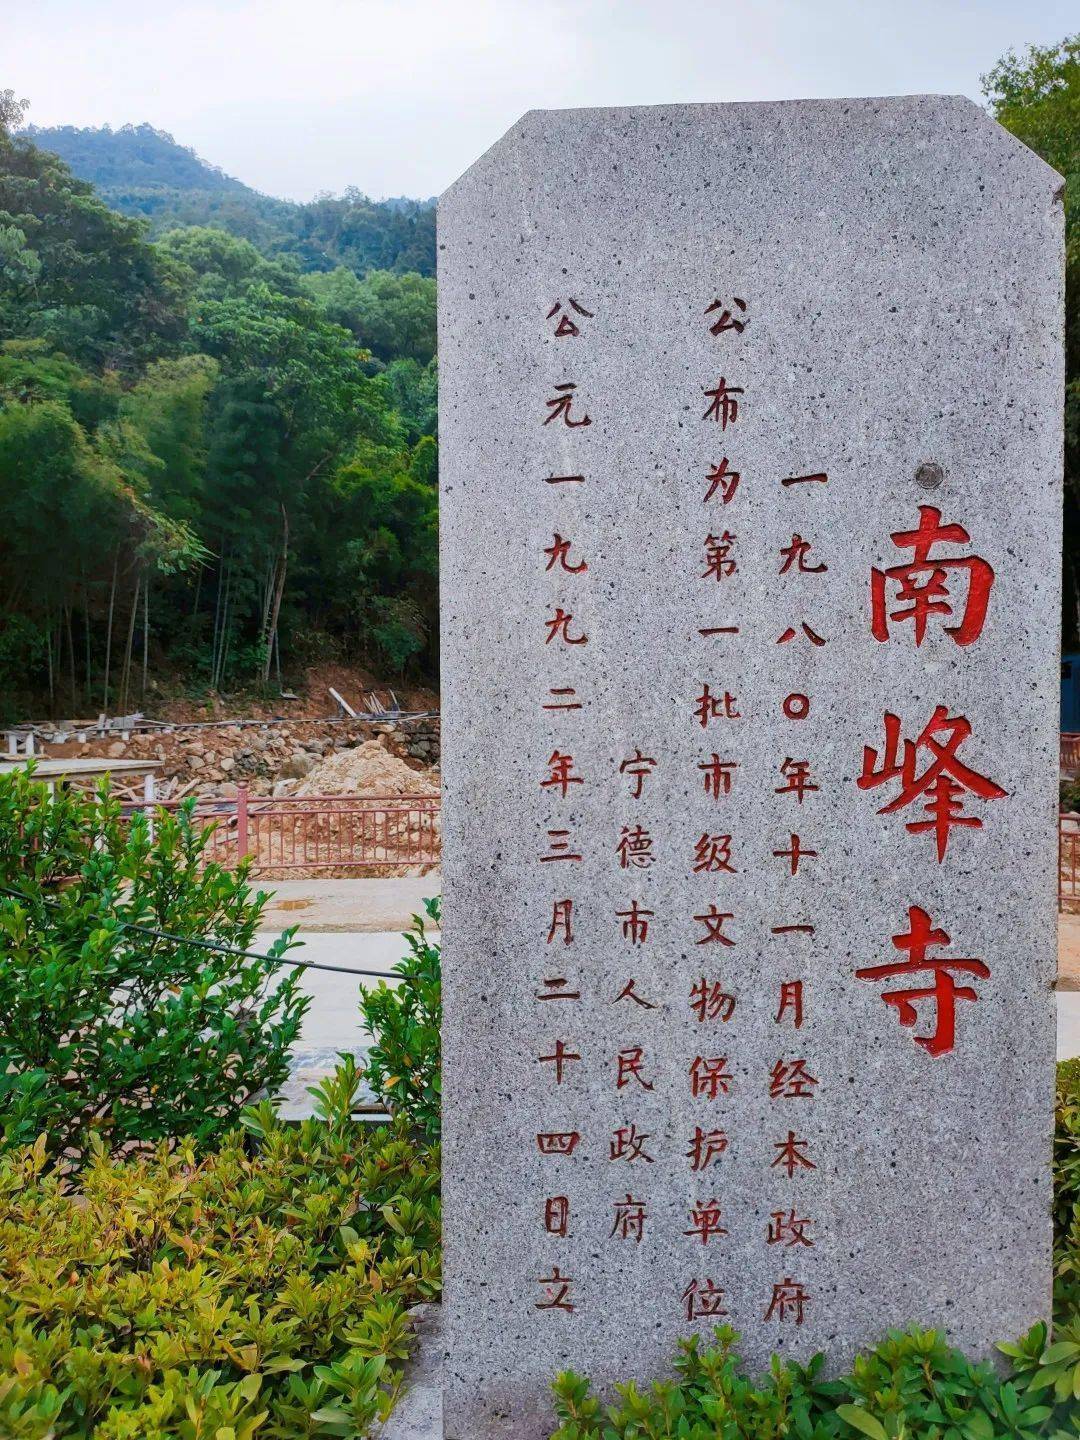 南峰寺
一九八〇年十一月经本政府
公布为第一批市级文物保护单位
宁德市人民政府
公元一九九二年三月二十四日立